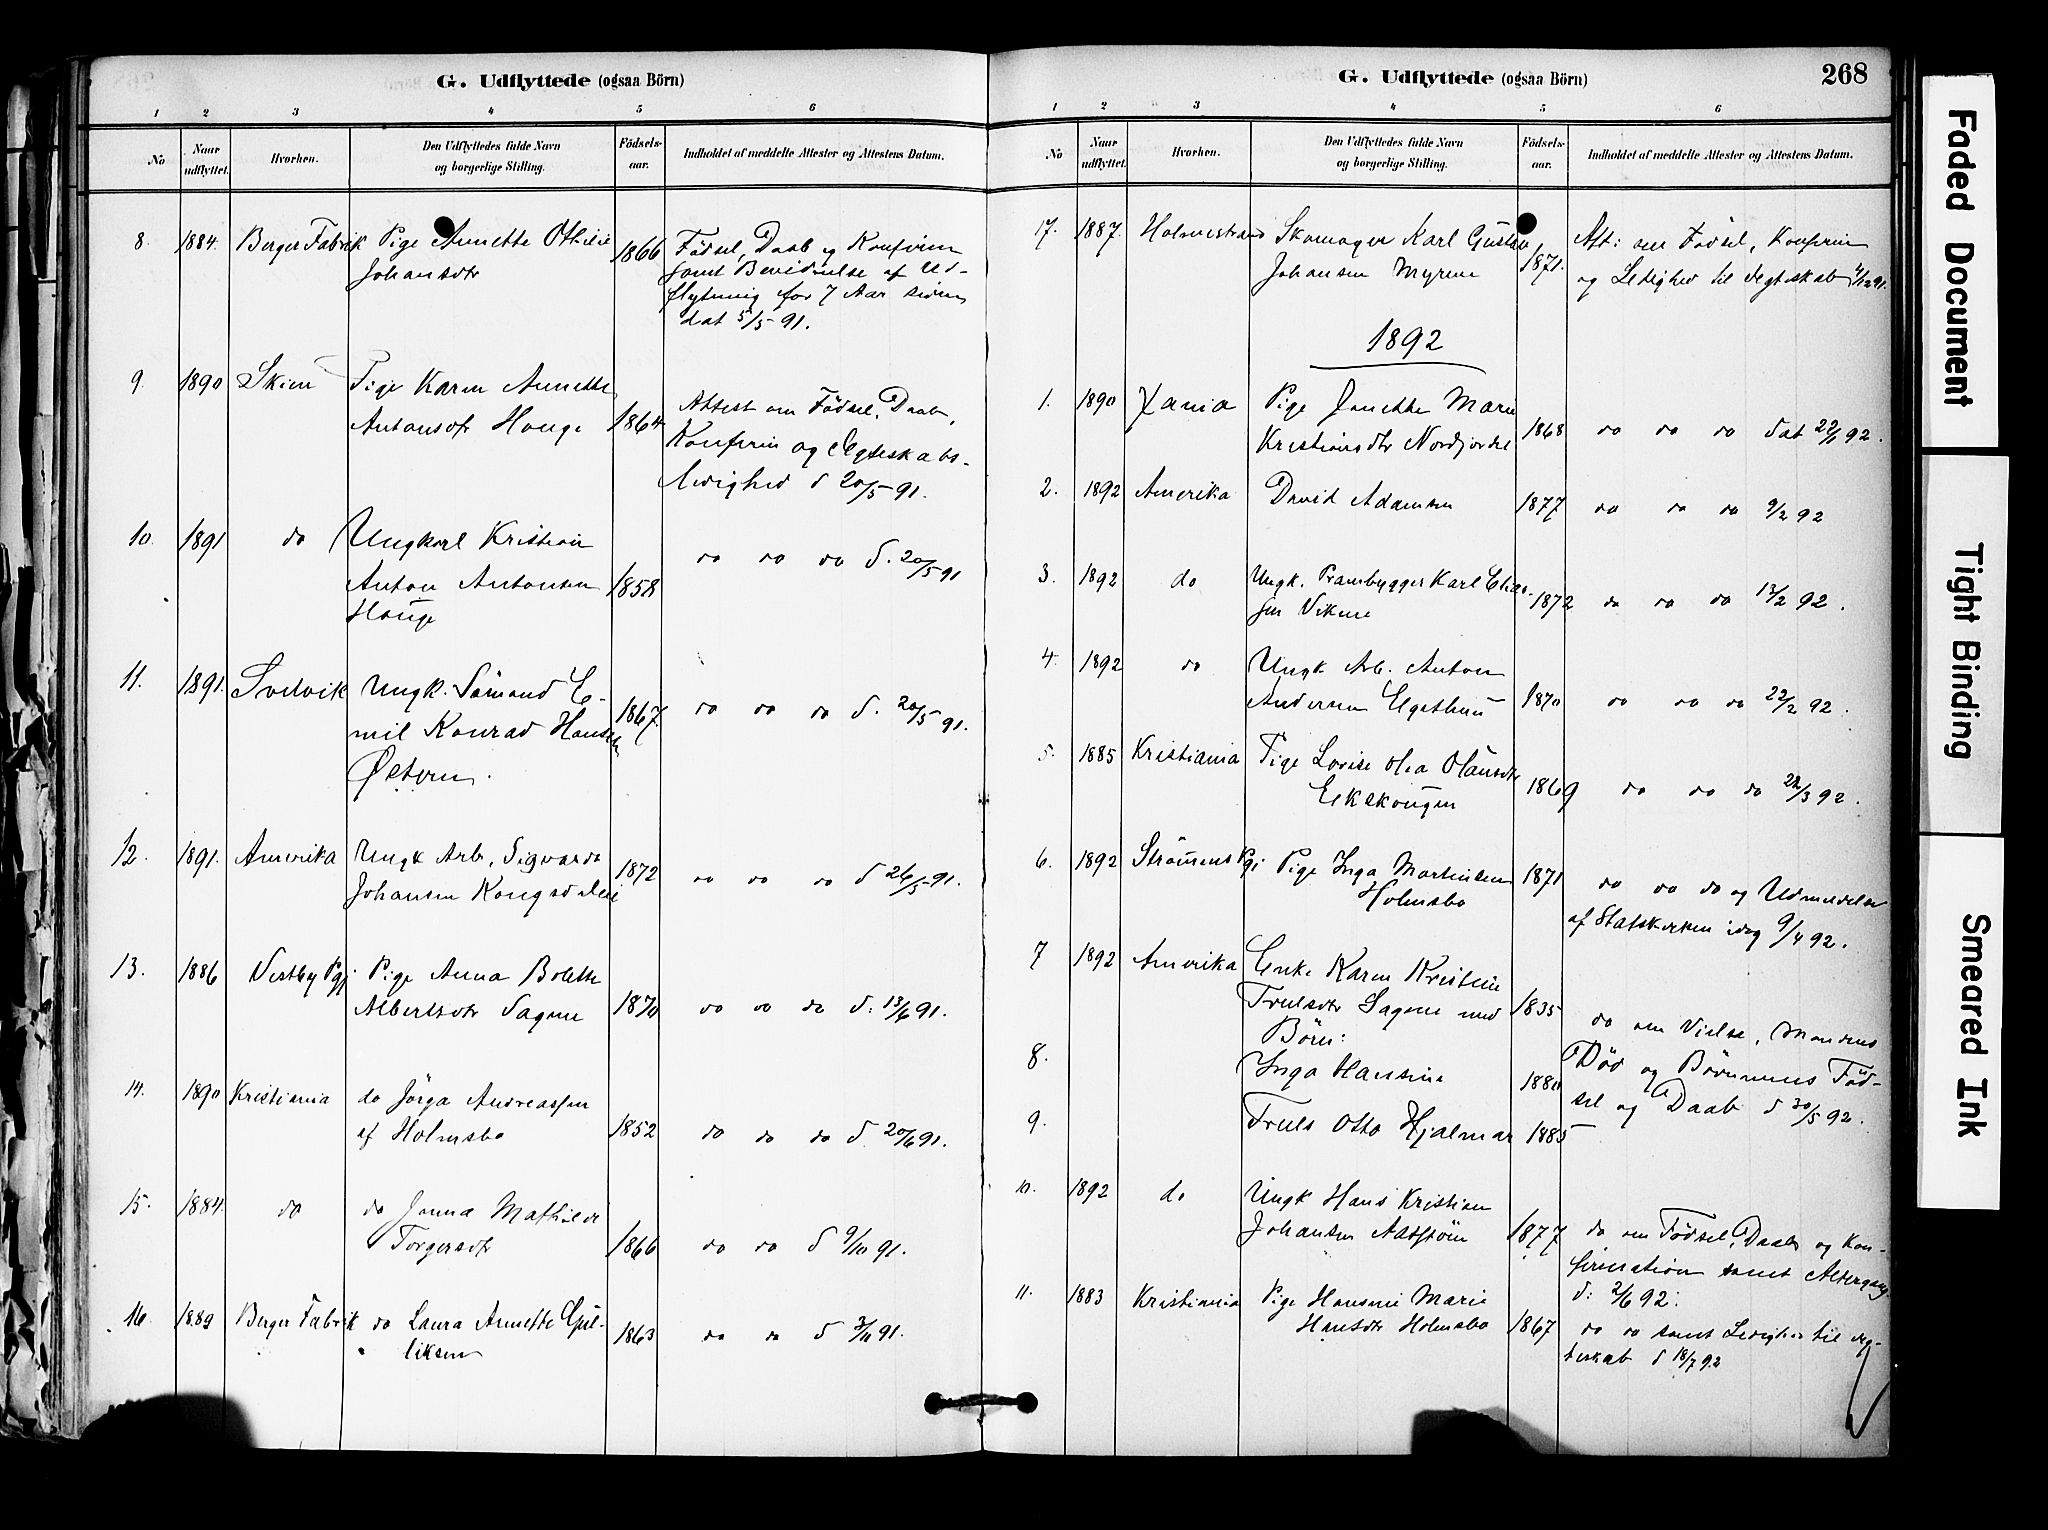 G. Udflyttede (ogsaa Börn)
1 2 3 4 5 6
No
Naar udflyttet.
Hvorhen.
Den Udflyttedes fulde Navn
og borgerlige Stilling.
Födsels-
aar.
Indholdet af meddelte Attester og Attestens Datum.
8. 1884. Berger Fabrik Pige Annette Othilie
Johansdtr 1866 Fødsel, Daab og Konfirm
samt Bevidnelse af Ud-
flytning for 7 Aar siden
dat 5/5 91.
9. 1890 Skien Pige Karen Annette
Antonsdtr Houge 1864 Attest om Fødsel, Daab,
Konfirm og Ægteskabs-
ledighed d 20/5 91.
10. 1891 do Ungkarl Kristian
Anton Antonsen 1858 do do do d. 20/5 91
Houge
11. 1891. Svelvik Ungk. Sömand E-
mil Konrad Hansen 1867. do do do d. 20/5 91.
Østern.
12. 1891. Amerika Ungk Arb. Sigvard
Johansen Kongsdelie 1872 do do do d 26/5 91.
13. 1886 Vestby Pgj. Pige Anna Bolette
Albertsdtr Sagene 1870 do do do d. 13/6 91.
14. 1890 Kristiania do Jörga Andreassen
af Holmsbo 1852 do do do d. 20/6 91.
15. 1884. do do Janna Mathilde
Torgersdtr 1866 do do d 9/10 91.
16. 1889 Berger Fabrik do Laura Annette Gul-
liksen 1863 do do d 3/11 91.
G. Udflyttede (ogsaa Börn) 268
1 2 3 4 5 6
No
Naar udflyttet.
Hvorhen.
Den Udflyttedes fulde Navn
og borgerlige Stilling.
Födsels-
aar.
Indholdet af meddelte Attester og Attestens Datum.
17. 1887. Holmestrand Skomager Karl Gustav
Johansen Myrene 1871. Att: om Fødsel, Konfirm
og Ledighed til Ægteskab 4/12 91.
1892
1. 1890 Xania Pige Janette Marie
Kristiansdtr Nordfjordet 1868 do do do dat 22/1 92.
2. 1892 Amerika David Adamsen 1877 do do do 9/2 92
3. 1892 do Ungk. Prambygger Karl Elias-
sen Vikene 1872 do do do 13/2 92.
4. 1892 do Ungk Arb. Anton
Andersen Egethun 1870 do do do 22/2 92.
5. 1885 Kristiania Pige Lovise Olea Olausdtr
Ekeskougen 1869 do do do 22/3 92.
6. 1892 Strömens Pgj Pige Inga Martinsen
Holmsbo 1871 do do do og Udmeldelse
af Statskirken idag 9/4 92.
7 1892 Amerika Enke Karen Kristine
Trulsdtr Sagene med 1835 do om Vielse, Mandens
Börn:
8. Inga Hansine 1880 Død og Børnenes Fød-
sel og Daab d 30/5 92.
9. Truls Otto Hjalmar 1885
10. 1892 do Ungk Hans Kristian
Johansen 1877 do om Fødsel, Daab og Kon-
firmation samt Altergang
d: 2/6 92.
11. 1883 Kristiania Pige Hansine Marie
Hansdtr Holmsbo 1867 do do samt Ledighed til Æg-
teskab d 18/7 92
Faded Document
Tight Binding
Smeared Ink